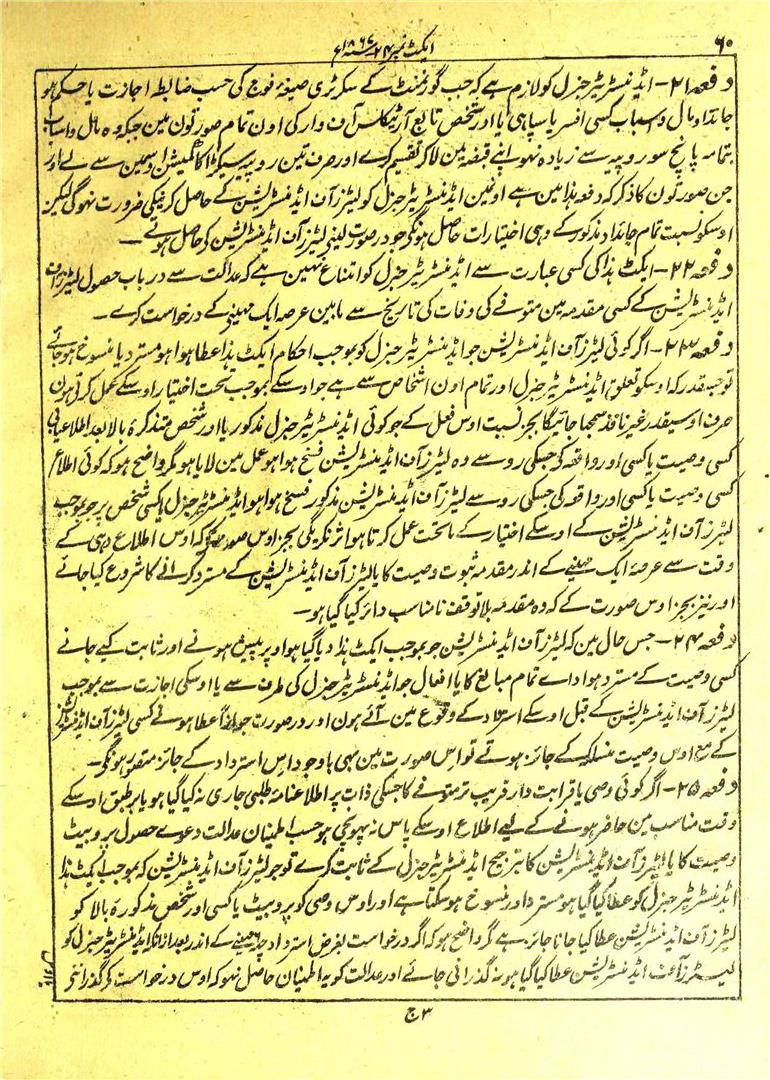 ۶۰
ایکٹ نمبر ۲۴ سنہ ۱۸۶۷ء
دفعہ ۲۱ - ایڈمنسٹریٹر جنرل کو لازم ہے کہ جب گورنمنٹ کے سکرٹری صیغۂ فوج کی حسب ضابطہ اجازت یا حکم ہو
جائداد مال و اسباب کسی افسر یا سپاہی یا اور شخص تابع آرٹیکلس آف وار کی اون تمام صورتون مین جبکہ وہ مال و اسباب
بتمامہ پانچ سو روپیہ سے زیادہ نہو اپنے قبضہ مین لاکر تقسیم کرے اور صرف تین روپیہ سیکڑا کا کمیشن اوسمین سے لے اور
جن صورتون کا ذکر کہ دفعہ ہذا مین ہے اونمین ایڈمنسٹریٹر جنرل کو لیٹرز آف ایڈمنسٹریشن کے حاصل کرنیکی ضرورت نہوگی لیکن
اوسکو نسبت تمام جائداد مذکور کے وہی اختیارات حاصل ہونگے جو در صورت لینے لیٹرز آف ایڈمنسٹریشن کی حاصل ہوتے -
دفعہ ۲۲ - ایکٹ ہذا کی کسی عبارت سے ایڈمنسٹریٹر جنرل کو امتناع نہین ہے کہ عدالت سے در باب حصول لیٹرز آف
ایڈمنسٹریشن کے کسی مقدمہ مین متوفے کی وفات کی تاریخ سے مابین عرصہ ایک مہینے کے درخواست کرے -
دفعہ ۲۳ - اگر کوئی لیٹرز آف ایڈمنسٹریشن جو ایڈمنسٹریٹر جنرل کو بموجب احکام ایکٹ ہذا عطا ہوا ہو مسترد یا منسوخ ہو جائے
تو جسقدر کہ اوسکو تعلق ایڈمنسٹریٹر جنرل اور تمام اون اشخاص سے ہے جو اوسکے بموجب تحت اختیار اوسکے عمل کرتے ہون
صرف اوسیقدر غیر نافذ سمجھا جائیگا بجز نسبت اوس فعل کے جو کوئی ایڈمنسٹریٹر جنرل مذکور یا اور شخص متذکرہ بالا بعد اطلاعیابی
کسی وصیت یا کسی اور واقعہ کی جسکی رو سے وہ لیٹرز آف ایڈمنسٹریشن فسخ ہوا ہو عمل مین لایا ہو مگر واضح ہو کہ کوئی اطلاع
کسی وصیت یا کسی اور واقعہ کی جسکی رو سے لیٹرز آف ایڈمنسٹریشن مذکور فسخ ہوا ہو ایڈمنسٹریٹر جنرل یا کسی شخص پر جو بموجب
لیٹرز آف ایڈمنسٹریشن کے اوسکے اختیار کے ماتحت عمل کرتا ہو اثر نکریگی بجز اوس صورت کے کہ اوس اطلاع دہی کے
وقت سے عرصہ ایک مہینے کے اندر مقدمہ ثبوت وصیت کا یا لیٹرز آف ایڈمنسٹریشن کے مسترد کرانے کا شروع کیا جائے
اور نیز بجز اوس صورت کے کہ وہ مقدمہ بلا توقف نامناسب دائر کیا گیا ہو -
دفعہ ۲۴ - جس حال مین کہ لیٹرز آف ایڈمنسٹریشن جو بموجب ایکٹ ہذا دیا گیا ہو اوپر پیش ہونے اور ثابت کیے جانے
کسی وصیت کے مسترد ہو ادائے تمام مبالغ کا یا افعال جو ایڈمنسٹریٹر جنرل کی طرف سے یا اوسکی اجازت سے بموجب
لیٹرز آف ایڈمنسٹریشن کے قبل اوسکے استرداد کے وقوع مین آئے ہون اور در صورت جوازاً عطا ہونے کسی لیٹرز آف ایڈمنسٹریشن
کے مع اوس وصیت منسلکہ کے جائز ہوتے تو اس صورت مین بھی باوجود اس استرداد کے جائز متصور ہونگے -
دفعہ ۲۵ - اگر کوئی وصی یا قرابت دار قریب تر متوفے کا جسکی ذات پر اطلاعنامہ طلبی جاری نہ کیا گیا ہو یا بر طبق اوسکے
وقت مناسب مین حاضر ہونے کے لیے اطلاع اوسکے پاس نہ پہونچی ہو حسب اطمینان عدالت دعوے حصول پروبیٹ
وصیت کا یا لیٹرز آف ایڈمنسٹریشن کا بترجیح ایڈمنسٹریٹر جنرل کے ثابت کرے تو جو لیٹرز آف ایڈمنسٹریشن کہ بموجب ایکٹ ہذا
ایڈمنسٹریٹر جنرل کو عطا کیا گیا ہو مسترد اور منسوخ ہو سکتا ہے اور اوس وصی کو پروبیٹ یا کسی اور شخص مذکورہ بالا کو
لیٹرز آف ایڈمنسٹریشن عطا کیا جانا جائز ہے مگر واضح ہو کہ اگر درخواست بغرض استرداد چھ مہینے کے اندر بعد ازانکہ ایڈمنسٹریٹر جنرل کو
لیٹرز آف ایڈمنسٹریشن عطا کیا گیا ہو نہ گذرانی جائے اور عدالت کو یہ اطمینان حاصل نہو کہ اوس درخواست کے گذراننے
۳ ج